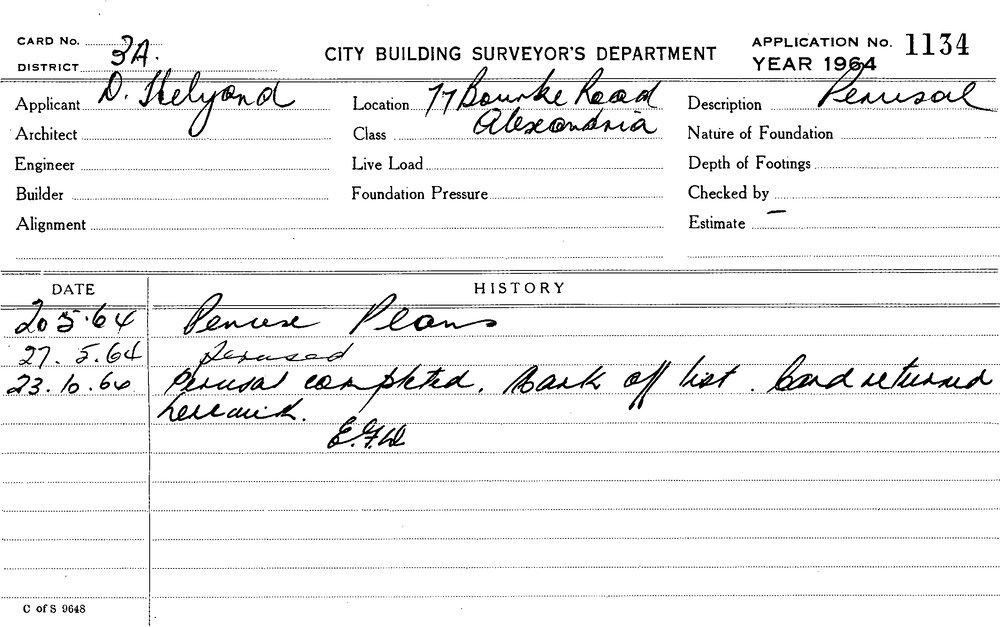 CARD No.
CITY BUILDING SURVEYOR'S DEPARTMENT
APPLICATION No. 1134
DISTRICT 3A.
YEAR 1964
Applicant D.
Location 77 Bourke Road
Alexandria
Description Perusal
Architect
Class
Nature of Foundation
Engineer
Live Load
Depth of Footings
Builder
Foundation Pressure
Checked by
Alignment
Estimate –
DATE
HISTORY
20 5.64 Peruse Plans
27. 5.64 Perused
23.10.64 Perusal completed. Mark off list. Card returned
herewith.
E.F.W
C of S 9648